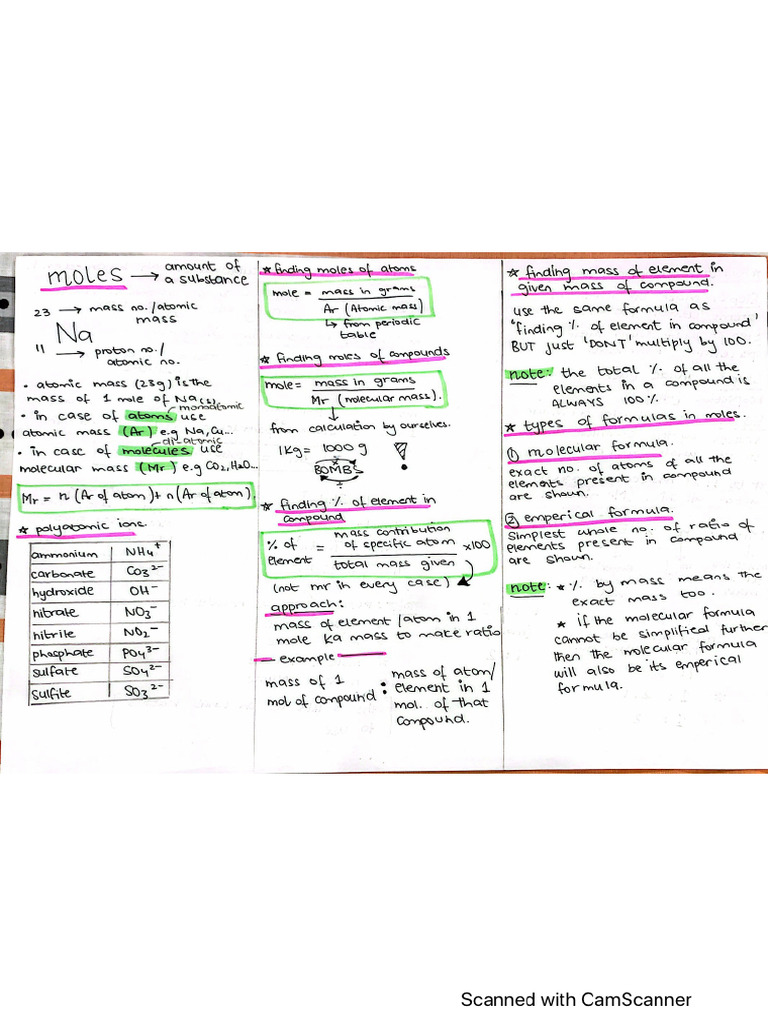 moles → amount of
a substance
23 → mass no./atomic
mass
Na
11 → proton no./
atomic no.
• atomic mass (23g) is the
mass of 1 mole of Na(s).
monoatomic
• in case of atoms use
atomic mass (Ar) e.g Na, Cu...
di-atomic
• in case of molecules use
molecular mass (Mr) e.g CO2, H2O...
Mr = n (Ar of atom) + n (Ar of atom).
* polyatomic ions
ammonium NH4+
carbonate CO3 2-
hydroxide OH-
nitrate NO3-
nitrile NO2-
phosphate PO4 3-
sulfate SO4 2-
sulfite SO3 2-
* finding moles of atoms
mole = mass in grams
Ar (Atomic mass)
↳ from periodic
table
* finding moles of compounds
mole = mass in grams
Mr (molecular mass).
↓
from calculation by ourselves.
1Kg = 1000 g !
BOMBS
* finding % of element in
compound
% of element = mass contribution
of specific atom x100
total mass given
(not mr in every case)
approach:
mass of element /atom in 1
mole ka mass to make ratio
— example —
mass of 1
mol of compound : mass of atom/
element in 1
mol. of that
compound.
* finding mass of element in
given mass of compound.
use the same formula as
'finding % of element in compound'
BUT just 'DONT' multiply by 100.
note: the total % of all the
elements in a compound is
ALWAYS 100%
* types of formulas in moles.
① molecular formula.
exact no. of atoms of all the
elements present in compound
are shown.
② emperical formula.
Simplest whole no. of ratio of
elements present in compound
are shown.
note: * % by mass means the
exact mass too.
* if the molecular formula
cannot be simplified further
then the molecular formula
will also be its emperical
formula.
Scanned with CamScanner